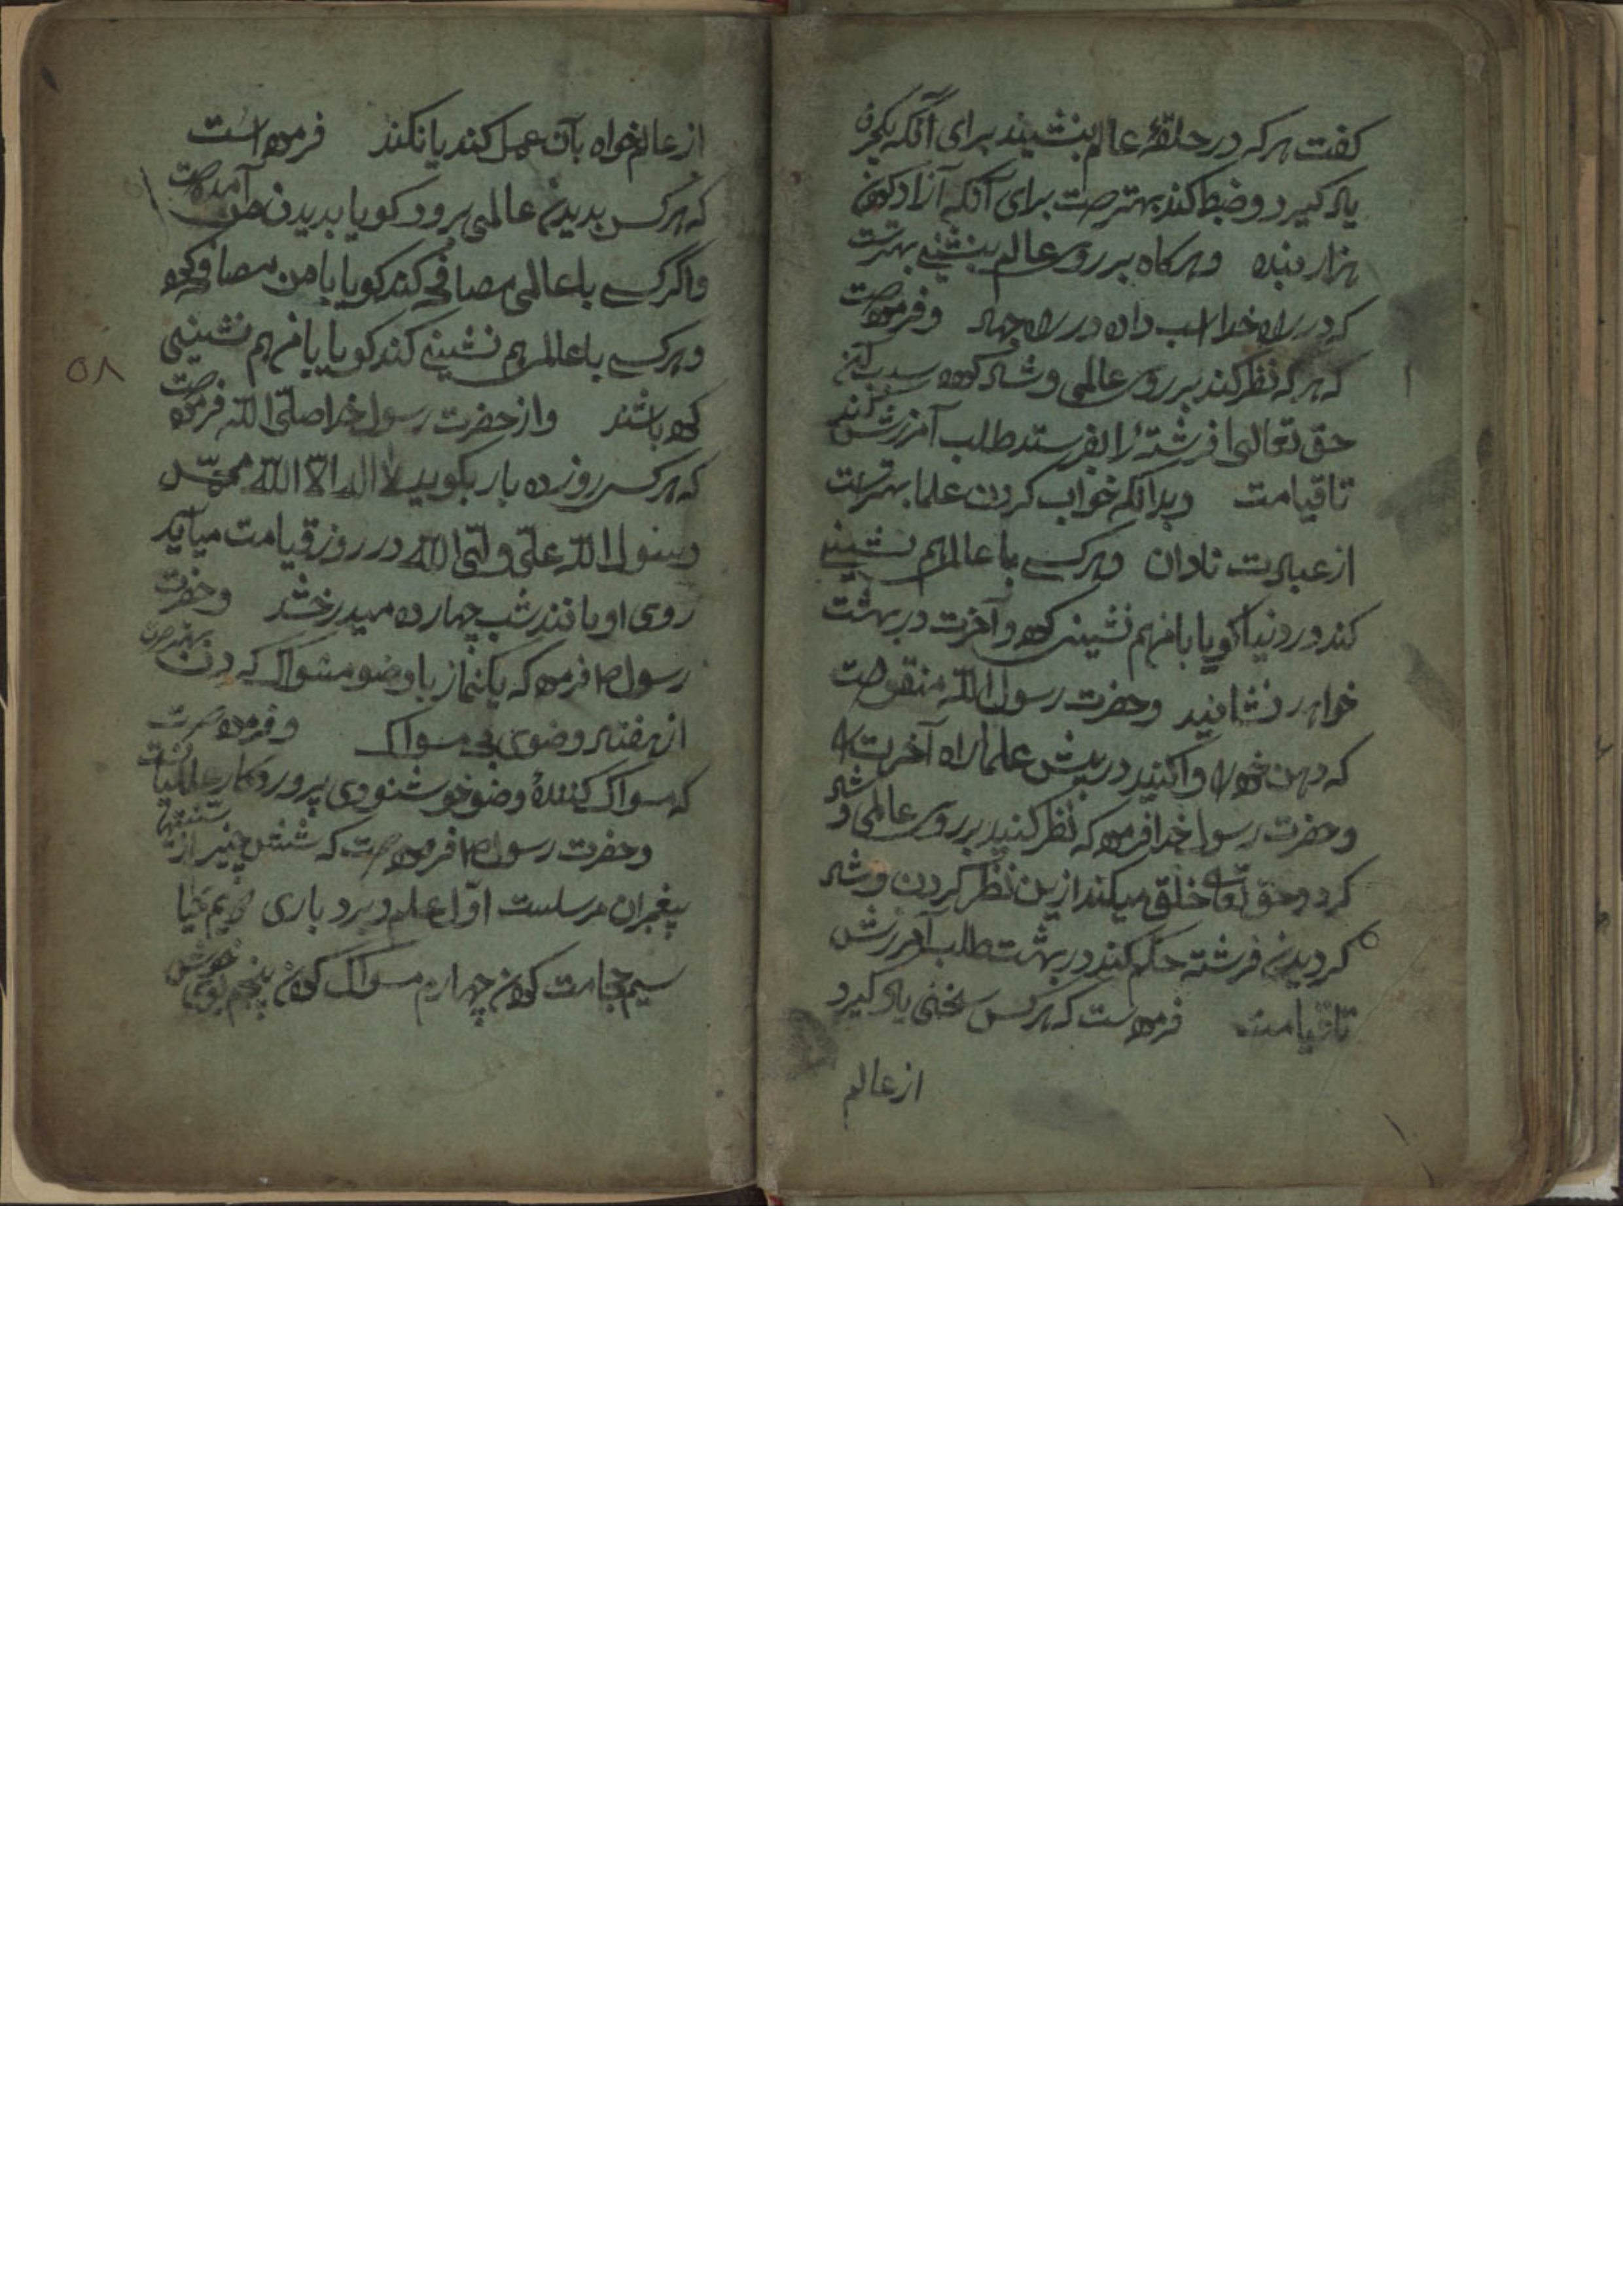 کفت هر که در حلقهٔ عالم بنشیند برای آنکه یکحرف
یاد کیرد و ضبط کند بهترست برای آنکه آزاد کردن
هزار بنده و هرکاه بر روی عالم بنشینی بهترست
که در راه خدا اسب دادن در راه جهاد و فرموده است
که هر که نظر کند بر روی عالمی و شاد کرده
حق تعالی فرشتهٔ را بفرستد طلب آمرزش کند
تا قیامت و بدانکه خواب کردن علما بهترست
از عبادت نادان و هر کسی با عالم هم نشینی
کند در دنیا کویا با من هم نشینی کرده و آخرت در بهشت
خواهد نشانید و حضرت رسول الله منقولست
که دهن خود را وا کنید در پیش علما راه آخرت
و حضرت رسول خدا فرموده که نظر کنید بر روی عالمی و شاد
کردد حق تعالی خلق میکند ازین نظر کردن و شاد
کردیدن فرشته حکم کند در بهشت طلب آمرزش
تا قیامت فرموده است که هر کس سخنی یاد کیرد
از عالم
از عالم خواه بآن عمل کند یا نکند فرموده است
که هر کس بدیدن عالمی برود کویا بدیدن من آمده است
و اگر کسی با عالمی مصافحه کند کویا با من مصافحه کرده
و هر کسی با عالم هم نشینی کند کویا با من هم نشینی
کرده باشند و از حضرت رسول خدا صلی الله فرموده است
که هر کس روز ده بار بگوید لا اله الا الله محمد
رسول الله علی ولی الله در روز قیامت میآید
روی او مانند شب چهارده میدرخشد و حضرت
رسول ص فرموده که یکنماز با وضو مسواک کردن بهترست
از هفتاد وضوی بی مسواک و فرموده است
که مسواک کنندهٔ وضو خوشنودی پروردکار عالمیان
و حضرت رسول ص فرموده است که شش چیز از سنتهای
پیغمبران مرسلست اول علم و بردباری دویم حیا
سیم حجامت کردن چهارم مسواک کردن پنجم بوی خوش
۵۸